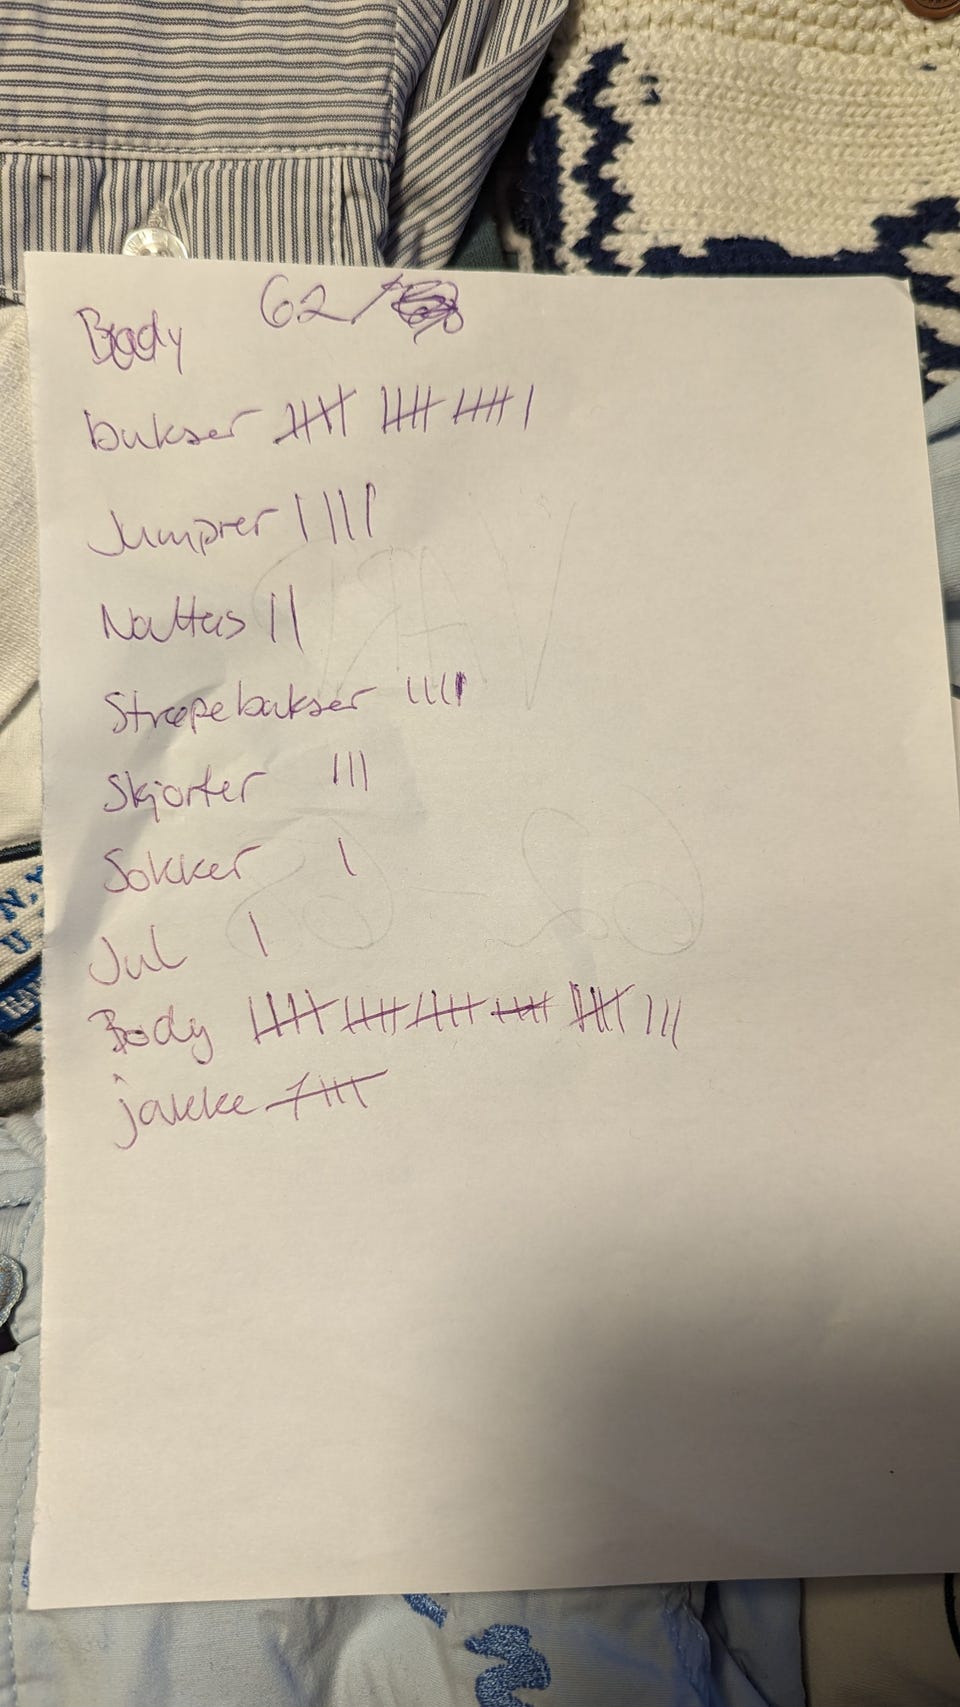 Body 62/
bukser 卌 卌 卌 |
Jumprer ||||
Nattøs ||
Strøpebukser ||||
Skjorter |||
Sokker |
Jul |
Body 卌 卌 卌 卌 卌 |||
jakke 卌